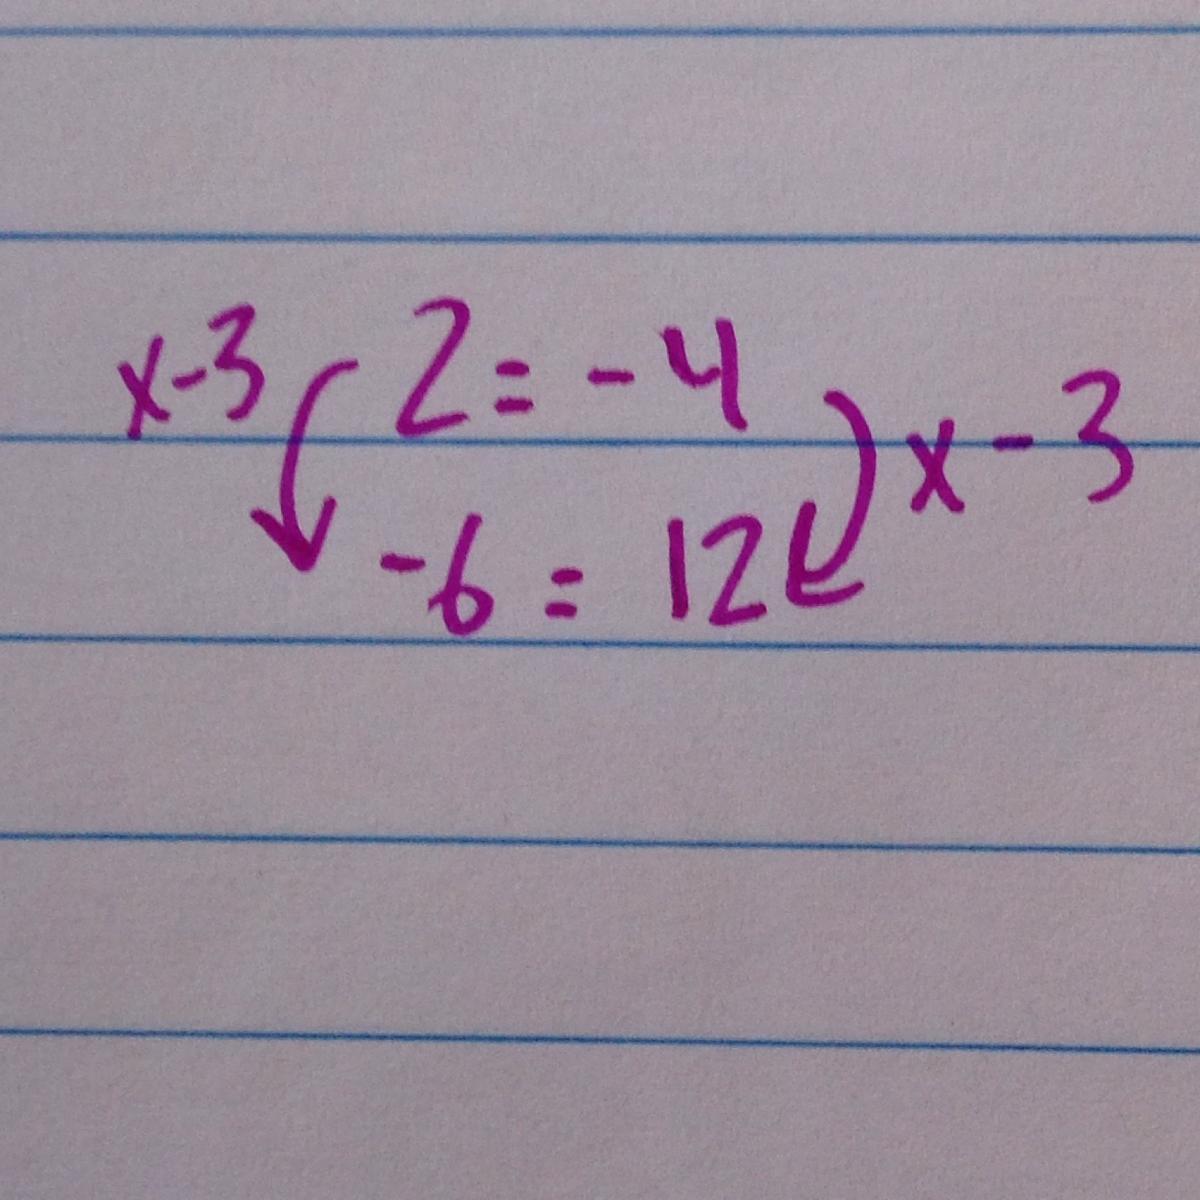 x-3 2 = -4 x-3
-6 = 12